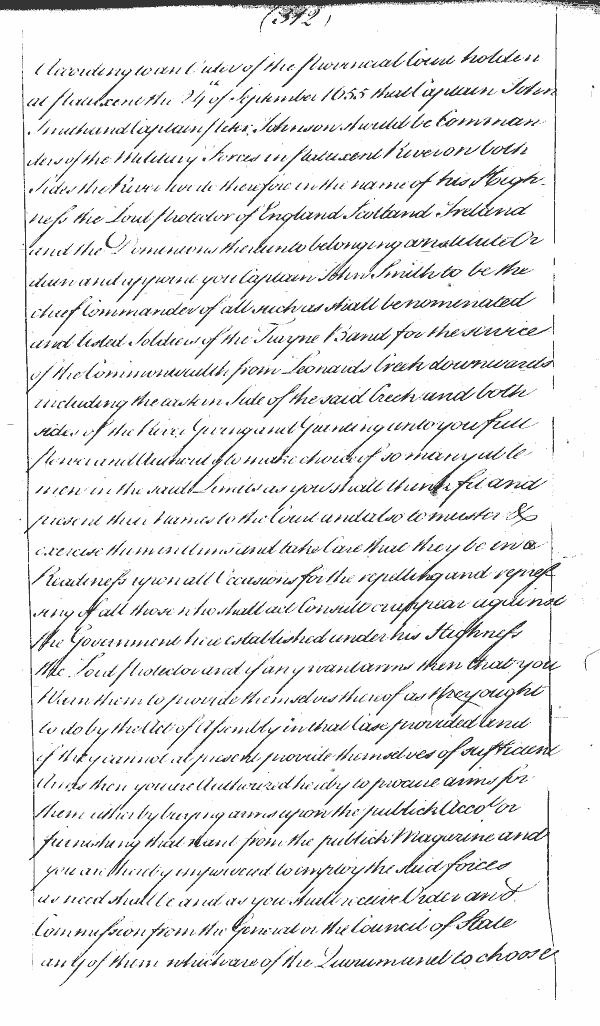 (312)
According to an Order of the Provincial Court holden
at Patuxent the 24th of September 1655 that Captain John
Smith and Captain Peter Johnson should be Comman
ders of the Military Forces in Patuxent River on both
Sides the River we do therefore in the name of his High-
ness the Lord Protector of England Scotland Ireland
and the Dominions thereunto belonging constitute Or
dain and appoint you Captain John Smith to be the
chief Commander of all such as shall be nominated
and listed Soldiers of the Trayne Band for the service
of the Commonwealth from Leonards Creek downwards
including the eastern Side of the said Creek and both
sides of the River Giving and Granting unto you full
Power and Authority to make choice of so many able
men in the said Limits as you shall think fit and
present their Names to the Court and also to muster &
exercise them in Arms and take Care that they be in a
Readiness upon all Occasions for the repelling and repres
sing of all those who shall act Consult or appear against
the Government here established under his Highness
the Lord Protector and if any want arms then that you
Warn them to provide themselves thereof as they ought
to do by the Act of Assembly in that Case provided and
if they cannot at present provide themselves of sufficient
Arms then you are Authorized hereby to procure arms for
them either by buying arms upon the publick Acco.t or
furnishing that want from the publick Magazine and
you are hereby impowered to imploy the said forces
as need shall be and as you shall receive Order and
Commission from the General or the Council of State
any of them which are of the Quorum and to choose